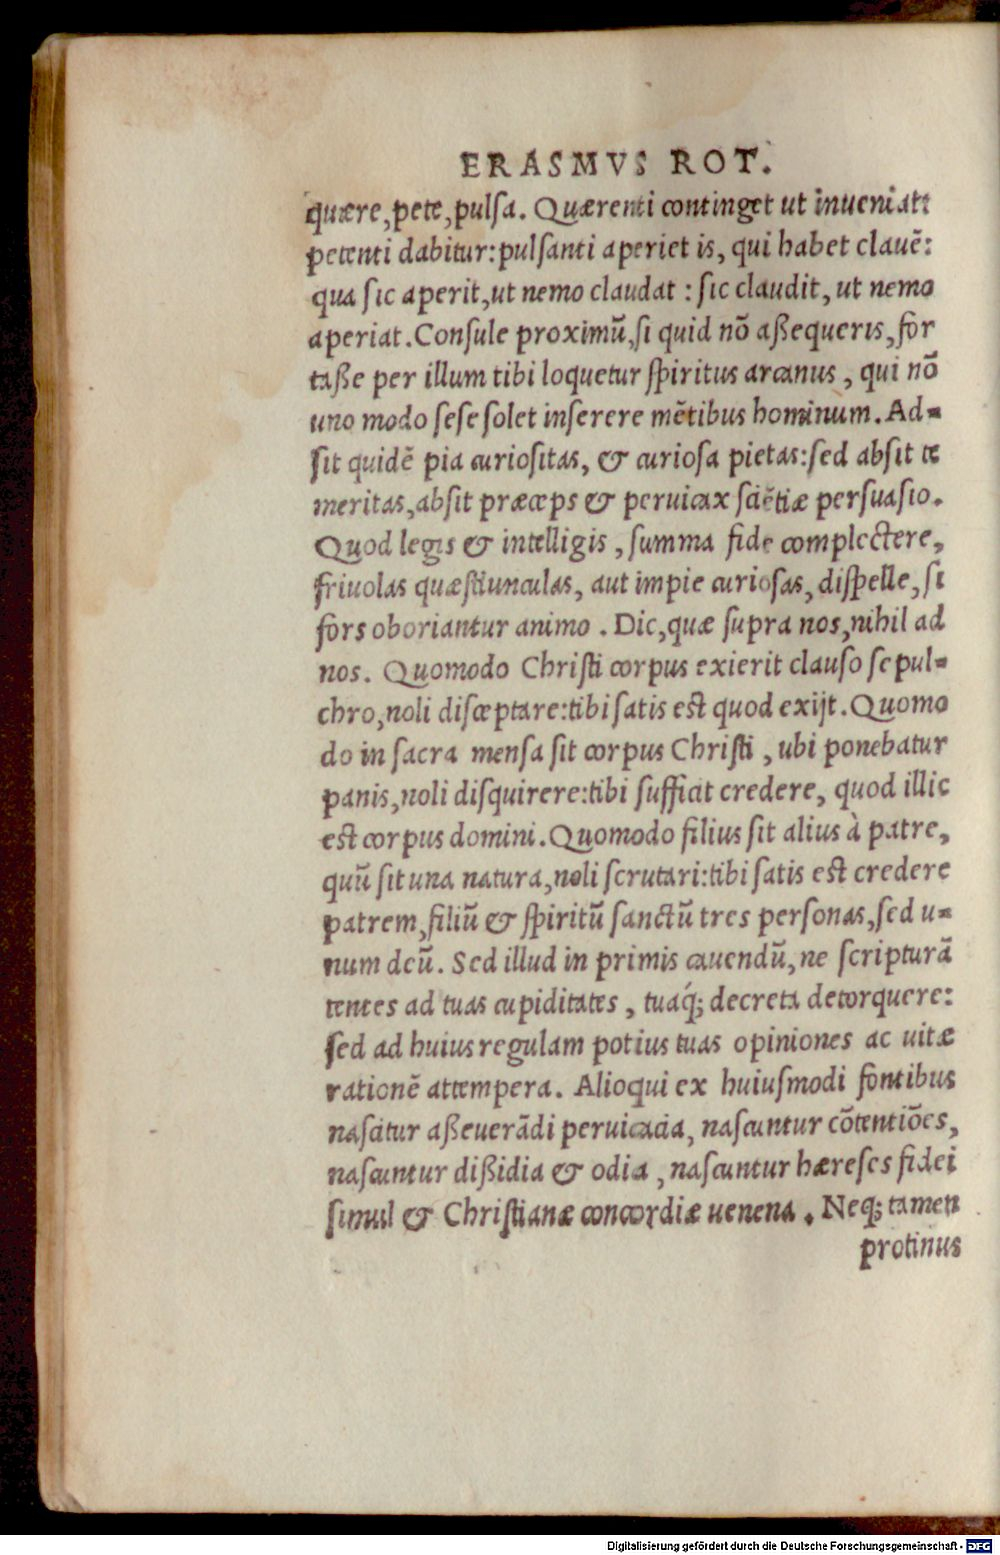 ERASMVS ROT.
quære, pete, pulſa. Quærenti continget ut inueniat:
petenti dabitur: pulſanti aperiet is, qui habet clauẽ:
qua ſic aperit, ut nemo claudat : ſic claudit, ut nemo
aperiat. Conſule proximũ, ſi quid nõ aßequeris, for
taße per illum tibi loquetur ſpiritus arcanus, qui nõ
uno modo ſeſe ſolet inſerere mẽtibus hominum. Ad=
ſit quidẽ pia curioſitas, & curioſa pietas: ſed abſit te
meritas, abſit præceps & peruicax sciẽtiæ perſuaſio.
Quod legis & intelligis, ſumma fide complectere,
friuolas quæſtiunculas, aut impie curioſas, diſpelle, ſi
fors oboriantur animo. Dic, quæ ſupra nos, nihil ad
nos. Quomodo Chriſti corpus exierit clauſo ſepul=
chro, noli diſceptare: tibi ſatis eſt quod exijt. Quomo
do in ſacra menſa ſit corpus Chriſti, ubi ponebatur
panis, noli diſquirere: tibi ſufficit credere, quod illic
eſt corpus domini. Quomodo filius ſit alius à patre,
quũ ſit una natura, noli ſcrutari: tibi ſatis eſt credere
patrem, filiũ & ſpiritũ ſanctũ tres perſonas, ſed u=
num deũ. Sed illud in primis cauendũ, ne ſcripturã
tentes ad tuas cupiditates, tuaq́; decreta detorquere:
ſed ad huius regulam potius tuas opiniones ac uitæ
rationẽ attempera. Alioqui ex huiuſmodi fontibus
naſcitur aßeuerãdi peruicacia, naſcuntur cõtentiões,
naſcuntur dißidia & odia, naſcuntur hæreſes fidei
ſimul & Chriſtianæ concordiæ uenena. Neq; tamen
protinus
Digitalisierung gefördert durch die Deutsche Forschungsgemeinschaft - DFG